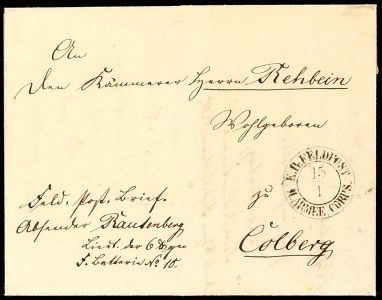 An
Den Kämmerer Herrn Rehbein
Wohlgeboren
zu
Colberg
K.P. FELDPOST
15
1
II. ARMEE CORPS.
Feld. Post. Brief.
Absender Rautenberg
Lieut. der 6
F. Batterie No 10.